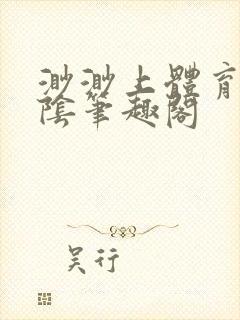 渺渺上體育
陰筆趣閣
吴行